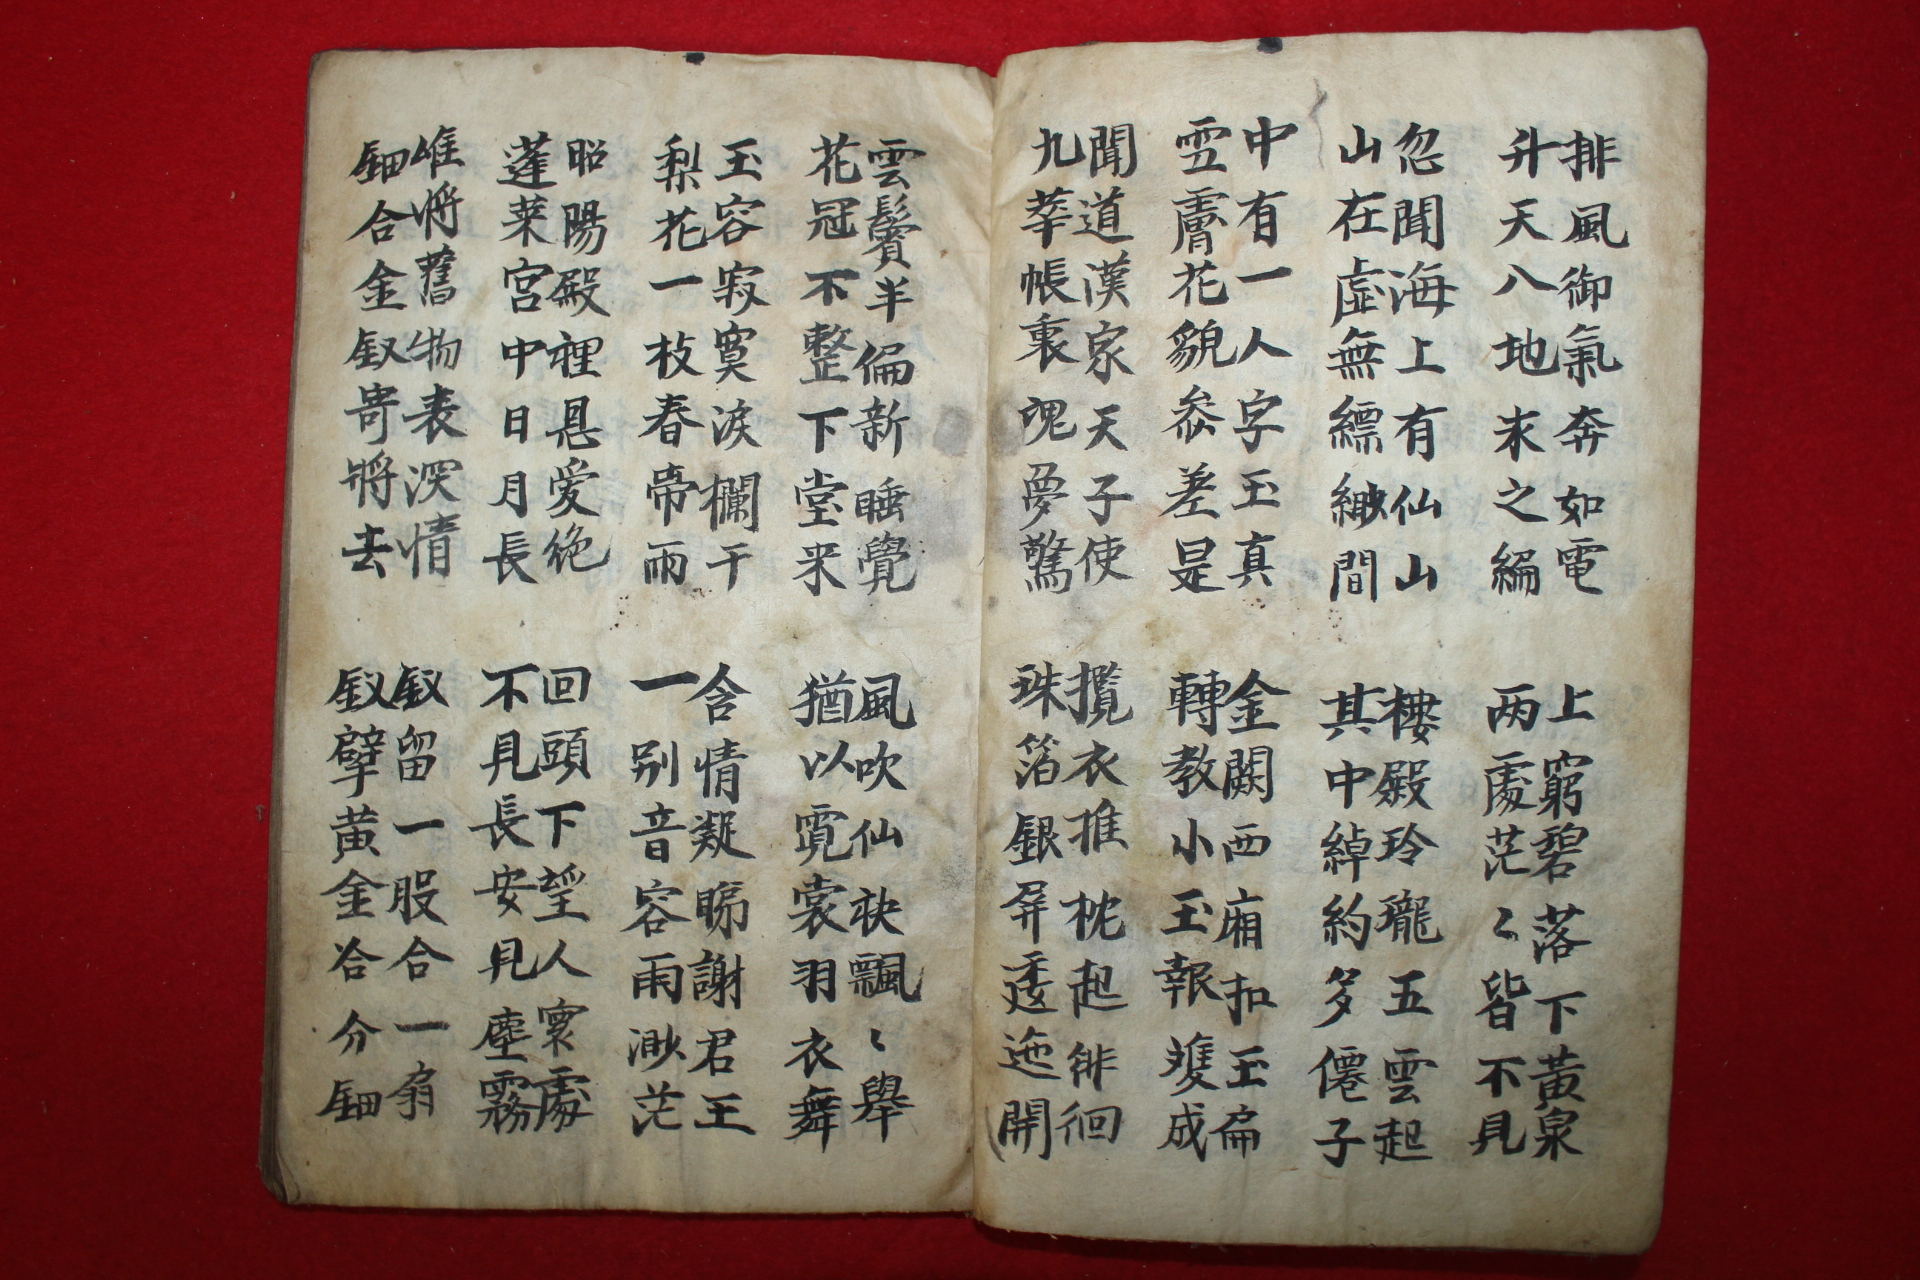 排風御氣奔如電
升天八地求之編
上窮碧落下黃泉
两處茫〻皆不見
忽聞海上有仙山
山在虛無縹緲間
樓殿玲瓏五雲起
其中綽約多僊子
中有一人字玉真
雪膚花貌叅差是
金闕西廂扣玉扁
轉教小玉報雙成
聞道漢家天子使
九華帳裏魂夢驚
攬衣推枕起徘徊
珠箔銀屏逶迤開
雲鬢半偏新睡覺
花冠不整下堂来
風吹仙袂飄〻舉
猶以霓裳羽衣舞
玉容寂寞淚欄干
梨花一枝春帶雨
含情凝睇謝君王
一别音容雨渺茫
昭陽殿裡恩愛絶
蓬莱宮中日月長
回頭下望人寰處
不見長安見塵霧
唯將舊物表深情
鈿合金釵寄將去
釵留一股合一扇
釵擘黃金合分鈿